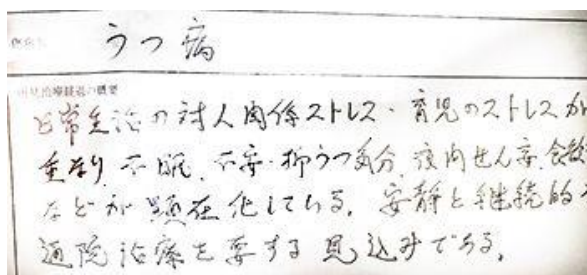 うつ病
治療経過の概要
日常生活の対人関係ストレス・育児のストレスが
重なり 不眠、不安・抑うつ気分、夜間せん妄、食欲
などが顕在化している。安静と継続的
通院治療を要する見込みである。